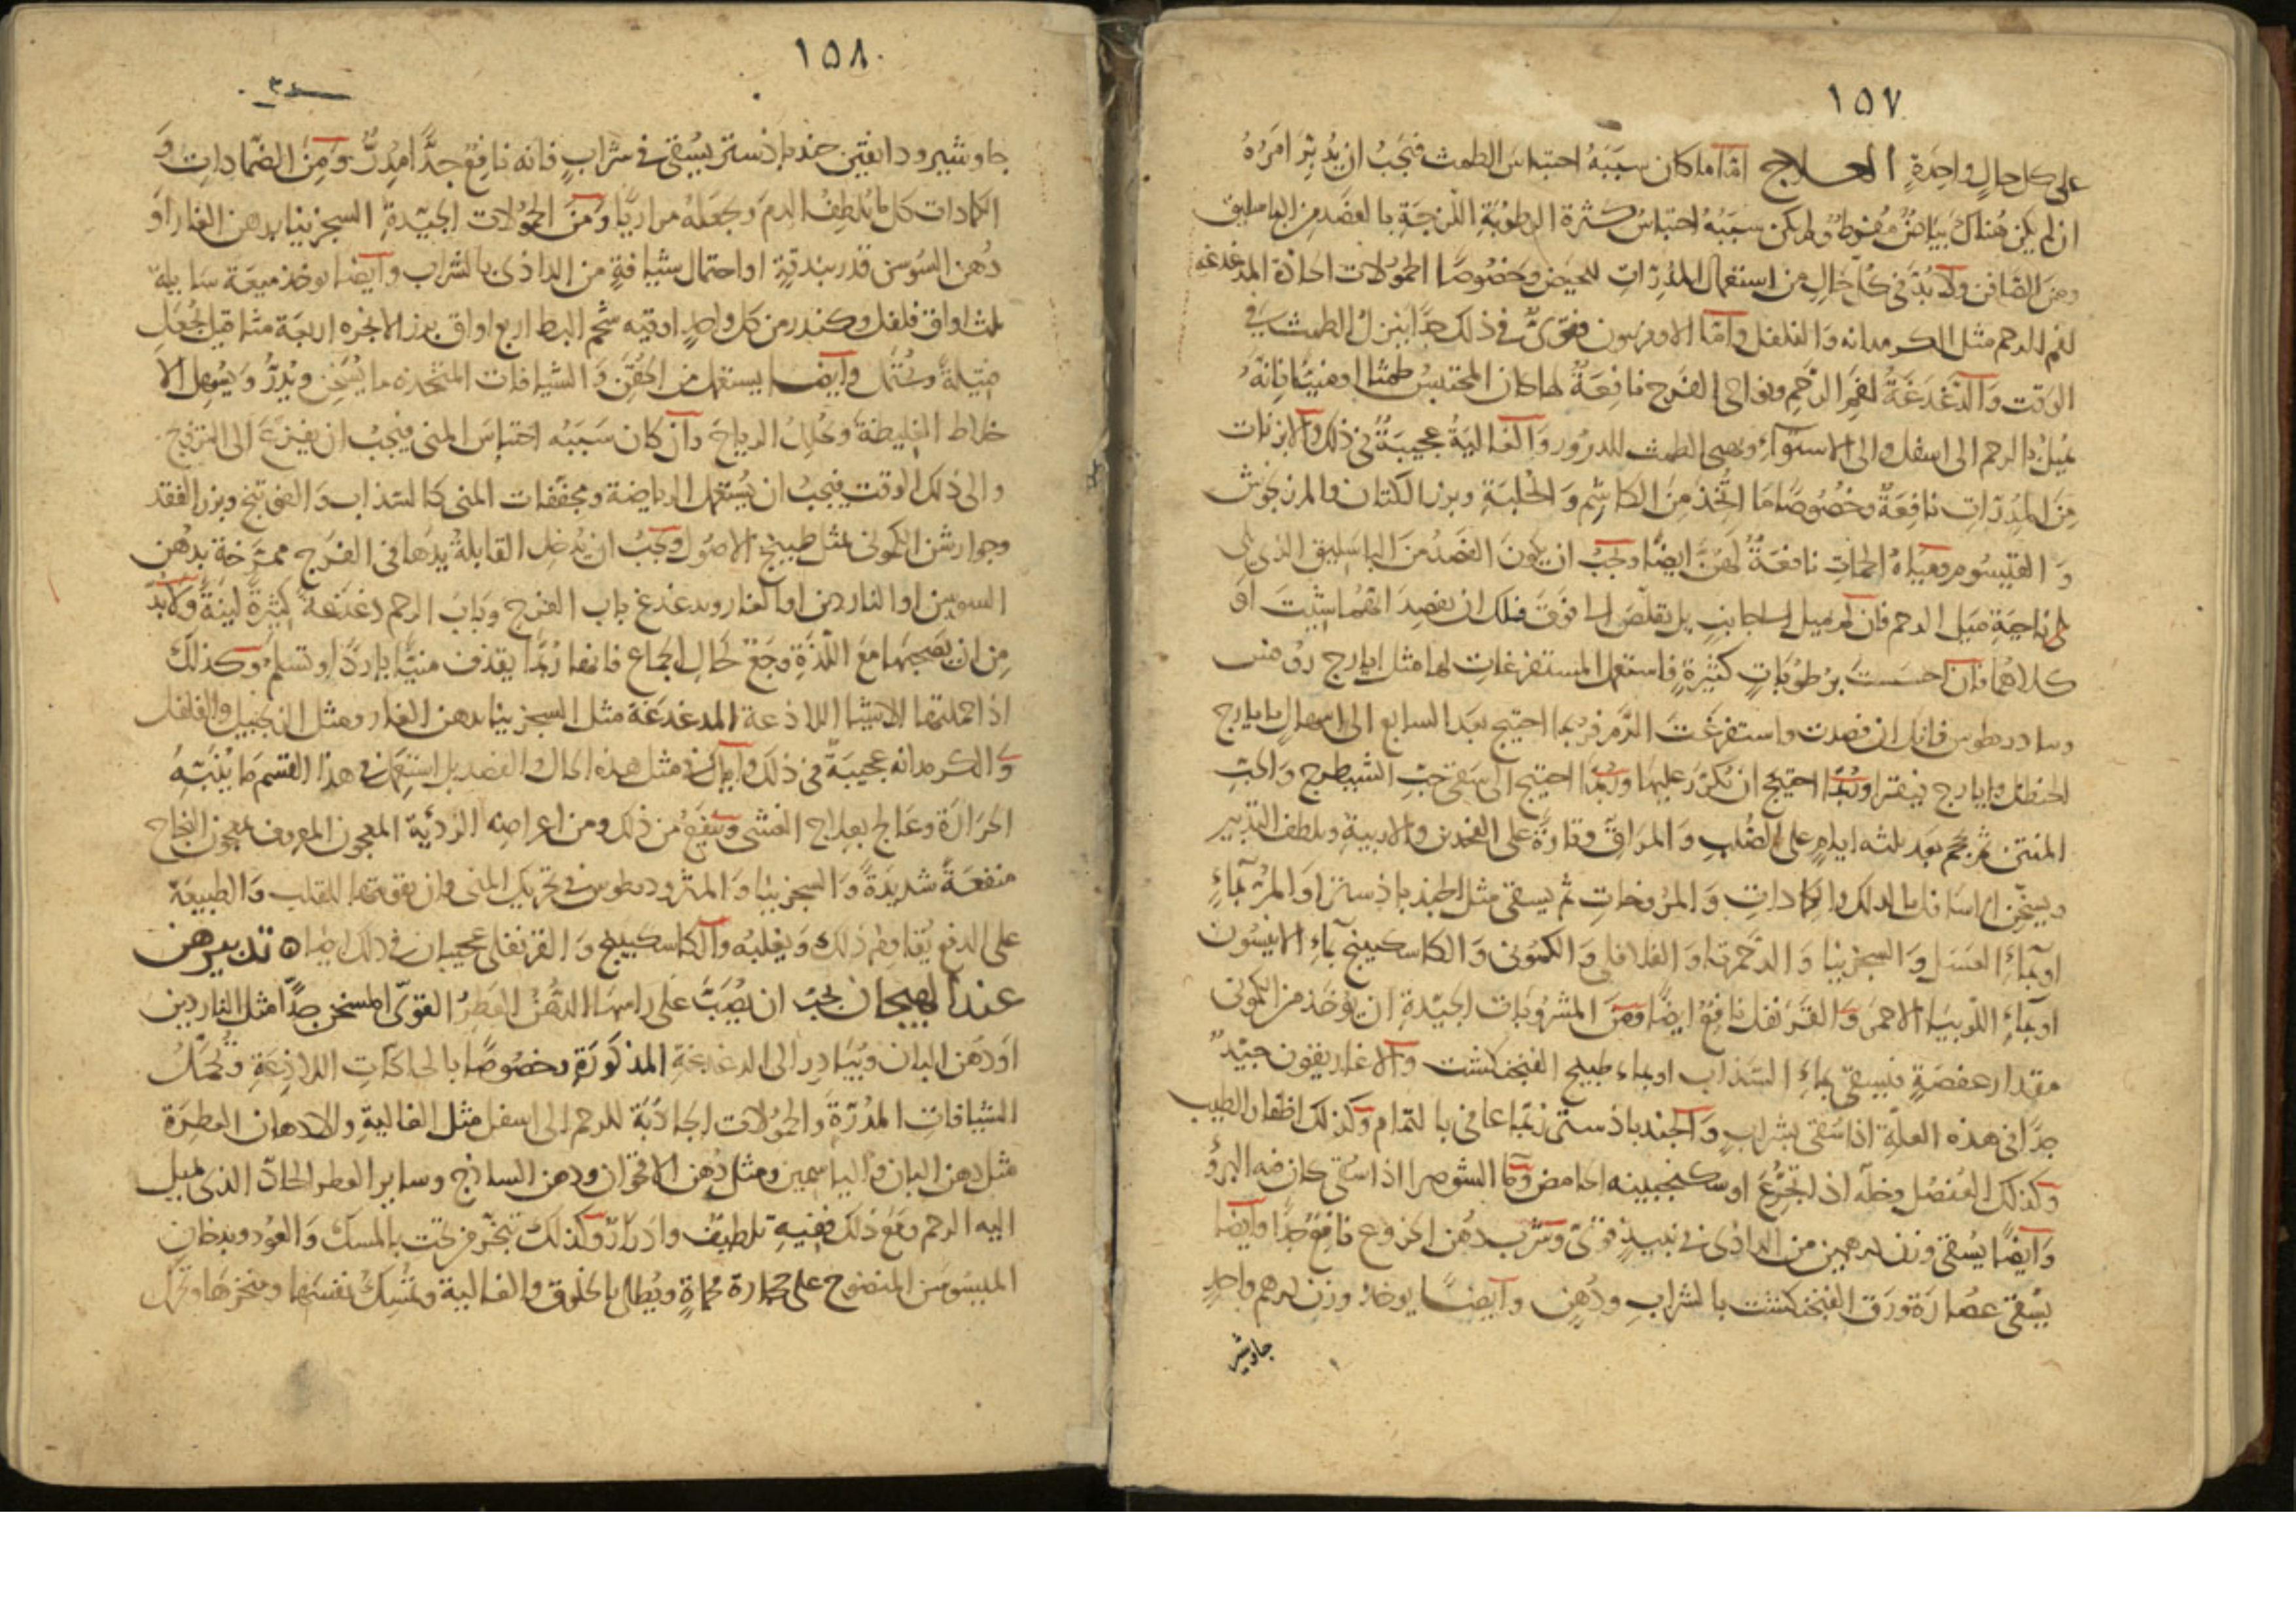 ١٥٧
على كل حالٍ واحِدَةٍ العلاج امّا ما كان سبَبَهُ احتباسَ الطمث فيَجبُ ان يُدبّرَ امرُهُ
ان لم يكن هُناك بَيَاضٌ مُفرِطٌ ولم يكن سبَبُهُ احتباسُ كثرة الرطوبةِ اللزجَةِ بالفصد من الباسليق
ومِنَ الصّافن ولا بُدّ في كُلّ حَالٍ من استعمال المُدِرّاتِ للحيَض وخصُوصًا الحمُولات الحادّة المدغدغة
لفم الرحم مثل الكرمدانه وَالفلفل وامّا الاوفربيون فقوىٌ في ذلك جدّا ينزلُ الطمثُ في
الوقت وَالدّغدغَةُ لفمِ الرّحِمِ ونواحى الفرج نافعَةٌ لها كان المحتبِسُ طمثا او منيًّا فانّهُ
يميل بالرحم الى اسفل والى الاستوآءِ الطمث للدرور وَالغاليَةُ عجيبَةٌ في ذلك والابزنات
مِنَ المدِرّاتِ نافِعَةٌ وخصُوصًا مَا اتّخذ مِنَ الكاشِم وَالحُلبَةِ وبزر الكتان والمرزنجوش
وَ القيسُوم ومِيَاهُ الحمّاتِ نافعَةٌ لهنّ ايضًا ويجبُ ان يكونَ الفصدُ منَ الباسليق الذى يلى
ناحِيَةِ مَيل الرحم فان لم يميل الى جانبٍ بل تقلّصَ الى فوق فلك ان تفصِدَ ايّهُما شِئتَ اوْ
كلاهُما فان احسَستَ برطُوبَاتٍ كثيرَةٍ فاستعمل المستفرغاتِ لها مثل ايارج روفس
وسادريطوس فانك ان فصدت واستفرغتَ الدّم فربما احتيج بعد السابع الى اسهالٍ بايارج
الحنظل وايارج فيقرا وربّما احتيج ان تُكرّرَ عليها وربّما احتيج الى سَقى حَبّ الشيطرج وَالحَبّ
المنتن ثمّ تحجم بعد ثلثه ايامٍ على الصُّلبِ وَالمرَاقّ وتارةً على الفخذين والاربيةِ ويلطف التدبير
ويسخّن اسَافل بالدلك والكمادات وَالمرُوخاتِ ثم يسقى مثل الجندباذستر او المُرّ بماءِ
او بماءِ العسَل وَالسجزنيا وَالدّحمرتا وَالفلافلى وَالكمونى وَالكاسكبينج بماءِ الانيسُون
او بماءِ اللّوبيَا الاحمَرِ وَالقرَنفل نافِعٌ ايضًا ومِنَ المشرُوبَات الجيّدةِ ان يُؤخَذ من الكمونى
مقدار عفصَةٍ فيسقى بماءِ السّذاب او بماء طبيخ الفنجنكشت وَالاغاريقون جيّدٌ
جدًّا في هذه العلّةِ اذا سُقى بشرابٍ وَالجندباذستر ربّما عافى بالتمام وكذلك اظفار الطيب
وكذلك العُنصُل وخلّه اذا تجُرّعَ او سكنجبينه الحامض وَامّا الشوصرا اذا سُقى كان فيه البروُ
وَايضًا يُسقى وزن درهمين من الداذى في نبيذٍ قوىّ وشرب دُهن الخروع نافِعٌ جدًّا وايضا
يُسقى عصَارَة ورَق الفنجنكشت بالشرابِ ودُهنٍ وايضًا يوخذ وزن درهم واحِدٍ
جاوشير
١٥٨
جاوشير ودانقين جندباذستر يسُقى في شرابٍ فانه نافعٌ جدًّا مُدِرٌّ ومِنَ الضّمادات وَ
الكمادات كل ما يُلطفُ الدمَ ويجعَلهُ مراريًّا ومن الحمُولات الجيّدةِ السجزنيا بدهن الغار اوْ
دُهن السّوسن قدر بندقةٍ او احتمال شيافةٍ من الداذى بالشراب وايضا يوخذ ميعَة سَايلة
ثلث اواق فلفل وكندر من كل واحدٍ اوقيه شحم البط اربع اواق بزر الانجره اربعَة مثاقيل يُجعَل
فتيلةً وتُحتمل وايضا يستعمل من الحُقَنِ وَالشيافات المتّخذه ما يُسخّن ويُدرُّ ويُسهل الا
خلاط الغليظة ويُحَلِلُ الرياحَ وان كان سَبَبُه احتباسَ المنى فيجبُ ان يفزعَ الى التزويج
والى ذلك الوقت فيجبُ ان يُستعمل الرياضة ومجففات المنى كالسّذاب وَالفوتنج وبزر الفقد
وجوارشن الكمونى بمثل طبيخ الاصُول ويجبُ ان تدخل القابلةُ يدَها في الفرج ممرّخة بدُهن
السوسن او الناردين او الغار وتدغدغ باب الفرج وبَابَ الرحم دغدغةً كثيرةً لينةً ولا بدّ
مِن ان يصحبهَا معَ اللّذةِ وجَعٌ كحَالِ الجماع فانها رُبمّا تقذف منيًّا باردًا وتسلم وكذلك
اذا حملتها الاشيا اللاذعة المدغدغة مثل السجزنيا بدهن الغار ومثل الزنجبيل والفلفل
والكرمدانه عجيبةٌ في ذلك واياك في مثل هذه الحال والفصد بل استعمل في هذا القسم ما يُنَبّهُ
الحرَارَة وعَالج بعلاج الغشى وينفعُ من ذلك ومن اعراضِه الرّديّة المعجون المعروف بمعجون النجاح
منفعَةً شديدَةً وَالسجزنيا وَالمثروديطوس في تحريك المنى وان يقوّتها للقلب وَالطبيعَة
على الدفع يُقاوِم ذلك وَيغلبُه وَالكاسكبينج وَالقرنفلى عجيبان في ذلك ايضاه تدبيرهن
عند الهيجان يجبُ ان يُصَبّ على راسهَا الدّهنُ العَطِرُ القوىّ المسخن جدًّا مثل الناردين
اوْ دُهن البان ويُبَادِر الى الدغدغةِ المذكورَةِ وخصُوصًا بالحاكّاتِ اللاذِعَةِ وتُحمّلُ
الشيافاتِ المُدرّةَ والحمُولات الجاذبَة للرحم الى اسفل مثل الغاليةِ والادهان العطِرَة
مثل دهن البان والياسمين ومثل دُهن الاقحوان ودهن الساذج وساير العطر الحادّ الذى يميل
اليه الرحم ومَعَ ذلك ففيهِ تلطيفٌ وادرارٌ وكذلك تبخّر من تحت بالمسك وَالعُود وبدخان
الميسُوسَن المنضوح على حجارة محماةٍ ويُطلى بالخلوق والغالية وتمُسَكُ نفسَها ومنخرها وتحرك